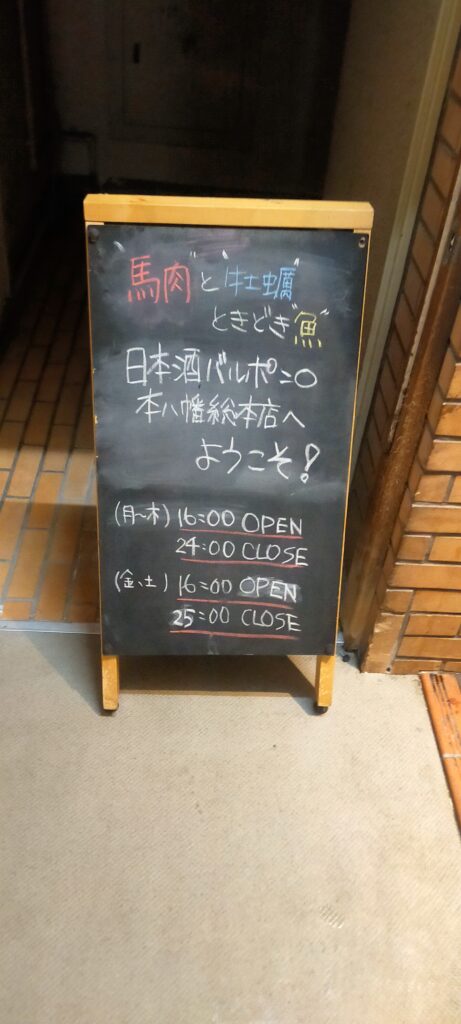 "馬肉"と"牡蠣"
ときどき"魚"
日本酒バルポン〇
本八幡総本店へ
ようこそ!
(月~木) 16:00 OPEN
24:00 CLOSE
(金、土) 16:00 OPEN
25:00 CLOSE